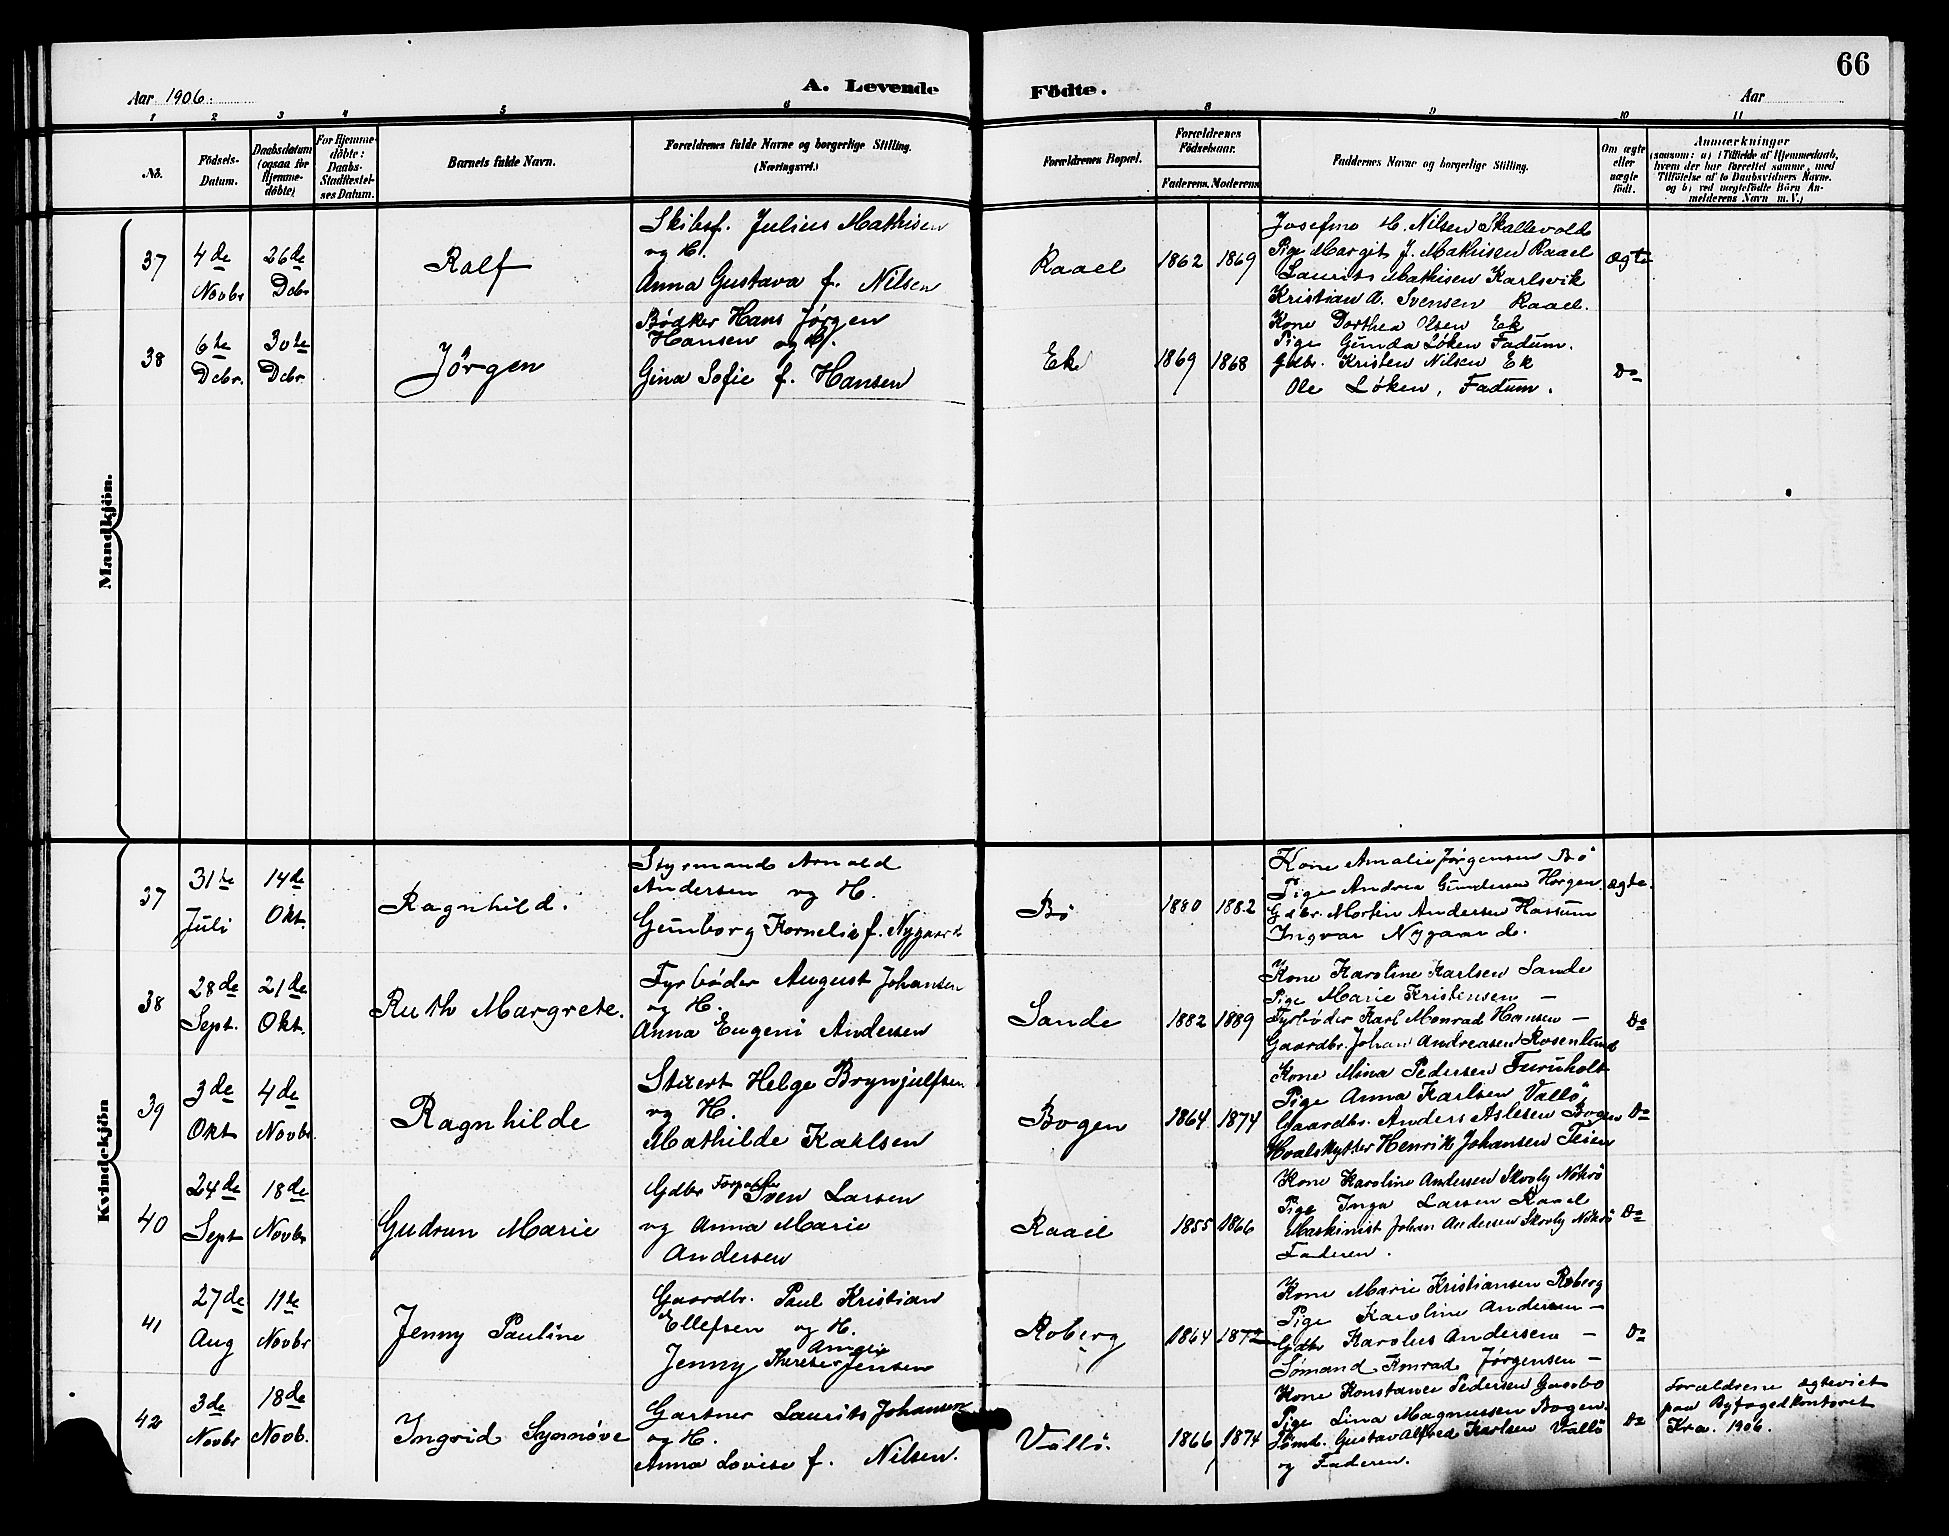 66
Aar 1906. A. Levende Födte. Aar
1 2 3 4 5 6 8 9 10 11
No. Födsels-Datum. Daabsdatum (ogsaa for Hjemme-döbte) For Hjemme-döbte: Daabs-Stadfæstelses Datum. Barnets fulde Navn. Forældrenes fulde Navne og borgerlige Stilling. (Næringsvei.) Forældrenes Bopæl. Forældrenes Födselsaar. Faderens. Moderens. Faddernes Navne og borgerlige Stilling. Om ægte eller uægte födt. Anmærkninger (saasom: a) i Tilfælde af Hjemmedaab, hvem der har forrettet samme, med Tilföielse af to Daabsvidners Navne. og b) ved uægtefödte Börn Anmelderens Navn m. V.)
Mandkjön.
37 4de Novbr 26de Dcbr Ralf
Skibsf. Julius Mathisen
og H.
Anna Gustava f. Nilsen
Raael 1862 1869
Josefine H. Nilsen Skallevold
Pige Margit J. Mathisen Raael
Laurits Mathisen Karlsvik
Kristian A. Svensen Raael.
ægte
38 6te Dcbr. 30te Dcbr. Jörgen
Bødker Hans Jørgen
Hansen og H.
Gina Sofie f. Hansen
Ek 1869 1868
Kone Dorthea Olsen Ek
Pige Gunda Løken Fadum.
Gdbr. Kristen Nilsen Ek
Ole Løken, Fadum.
Do
Kvindekjön
37 31te Juli 14de Okt. Ragnhild.
Styrmand Arnold
Andersen og H.
Gunborg Kornelia f. Nygaard
Bö 1880 1882
Kone Amalie Jørgensen Bö
Pige Andrea Gundersen Horgen
Gdbr. Martin Andersen Hassum
Ingvar Nygaard.
ægte.
38 28de Sept. 21de Okt. Ruth Margrete.
Fyrbøder August Johansen
og H.
Anna Eugeni Andersen
Sande 1882 1889
Kone Karoline Karlsen Sande
Pige Marie Kristensen —
Fyrbøder Karl Monrad Hansen —
Gaardbr. Johan Andreasen Rosenlund
Do
39 3de Okt 4de Novbr. Ragnhilde
Stuert Helge Brynjulfsen
og H.
Mathilde Karlsen
Bogen 1864 1874
Kone Mina Pedersen Furuholt
Pige Anna Karlsen Vallö
Gaardbr. Anders Aslesen Bogen
Hvalskytter Henrik Johansen Feien
Do
40 24de Sept 18de Novbr Gudrun Marie
Gdbr Forpagter Sven Larsen
og Anna Marie
Andersen
Raael 1855 1866
Kone Karoline Andersen Skovly Nøtrö
Pige Inga Larsen Raael
Maskinist Johan Andersen Skovly Nøtrö
Faderen.
Do
41 27de Aug 11te Novbr Jenny Pauline
Gaardbr. Paul Kristian
Ellefsen og H.
Jenny Therese Jensen
Roberg 1864 1872
Kone Marie Kristiansen Roberg
Pige Karoline Andersen —
Gdbr Karolus Andersen —
Sømand Konrad Jørgensen —
Do
42 3de Novbr 18de Novb. Ingrid Synnøve
Gartner Laurits Johansen
og H.
Anna Lovise f. Nilsen.
Vallö. 1866 1874
Kone Konstance Pedersen Gaasbo
Pige Lina Magnussen Bogen.
Sømd. Gustav Alfred Karlsen Vallö
og Faderen.
Do
Forældrene ægteviet
paa Byfogedkontoret
Kra. 1906.